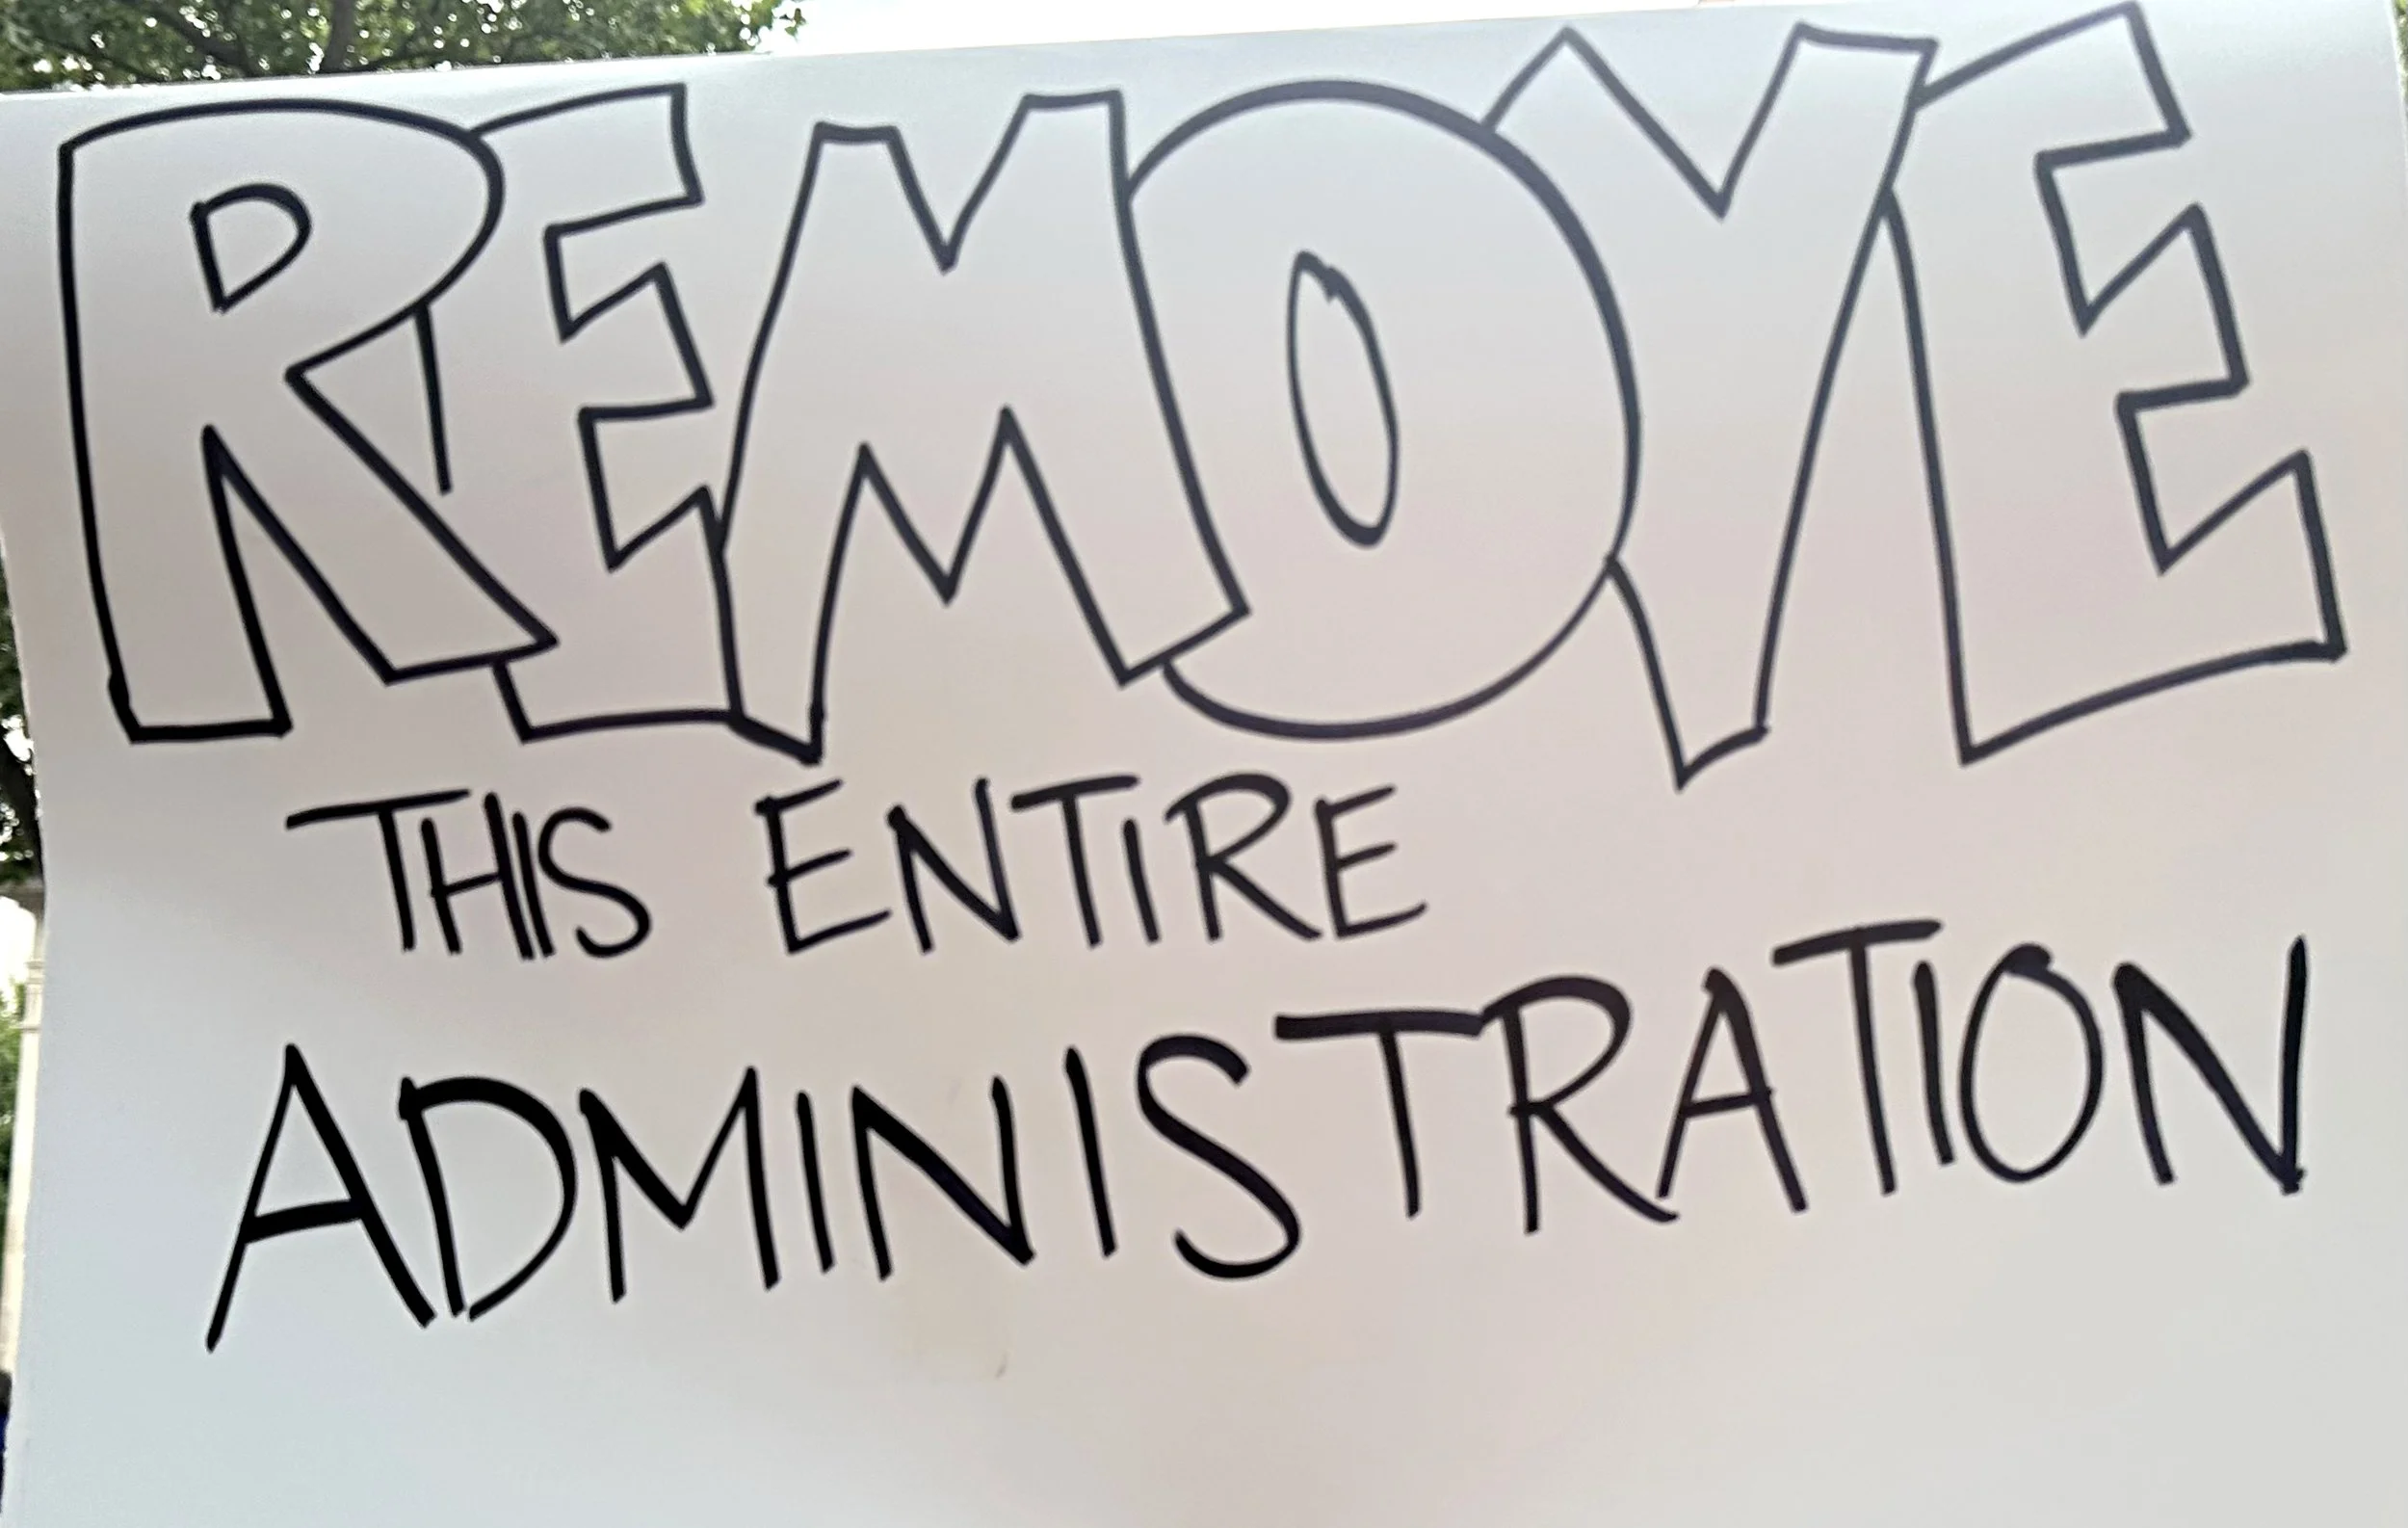 REMOVE
THIS ENTIRE
ADMINISTRATION